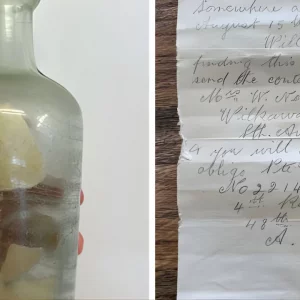 Somewhere a
August 15th
Will
finding this
send the cont
Mrs W. Ne
Wilkawa
Pth. A
& you will
oblige Pte
No 2214
4th R
48th
A.